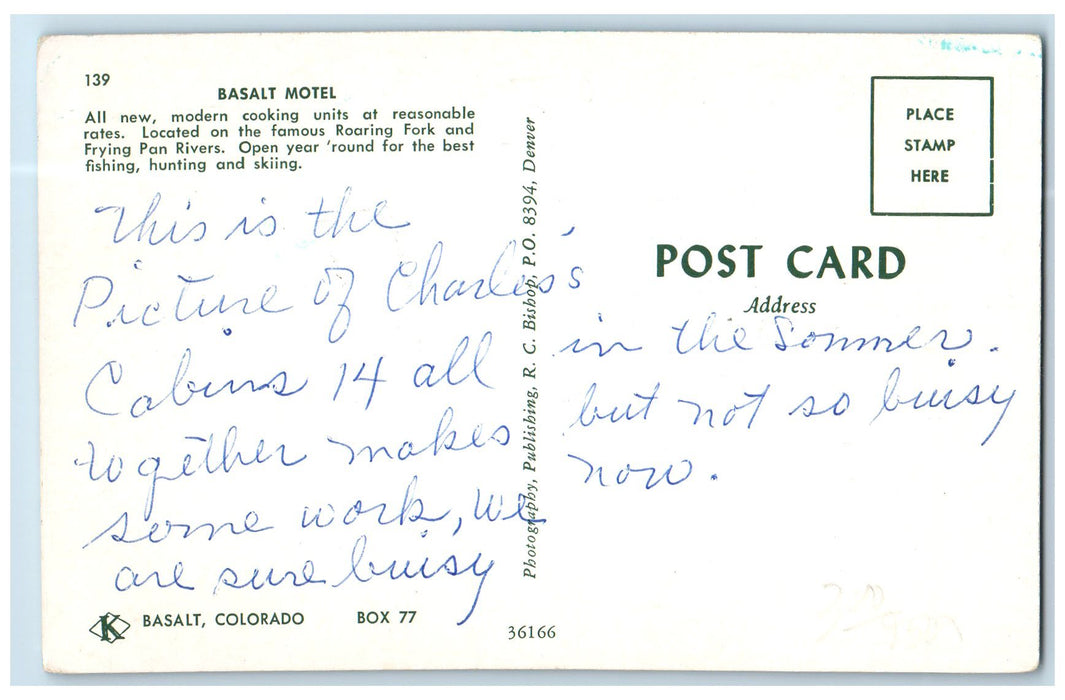 139
BASALT MOTEL
All new, modern cooking units at reasonable
rates. Located on the famous Roaring Fork and
Frying Pan Rivers. Open year 'round for the best
fishing, hunting and skiing.
This is the
Picture of Charles's
Cabins 14 all
together makes
some work, We
are sure buisy
K
BASALT, COLORADO BOX 77
Photography, Publishing, R. C. Bishop, P.O. 8394, Denver
36166
PLACE
STAMP
HERE
POST CARD
Address
in the Sommer.
but not so buisy
now.